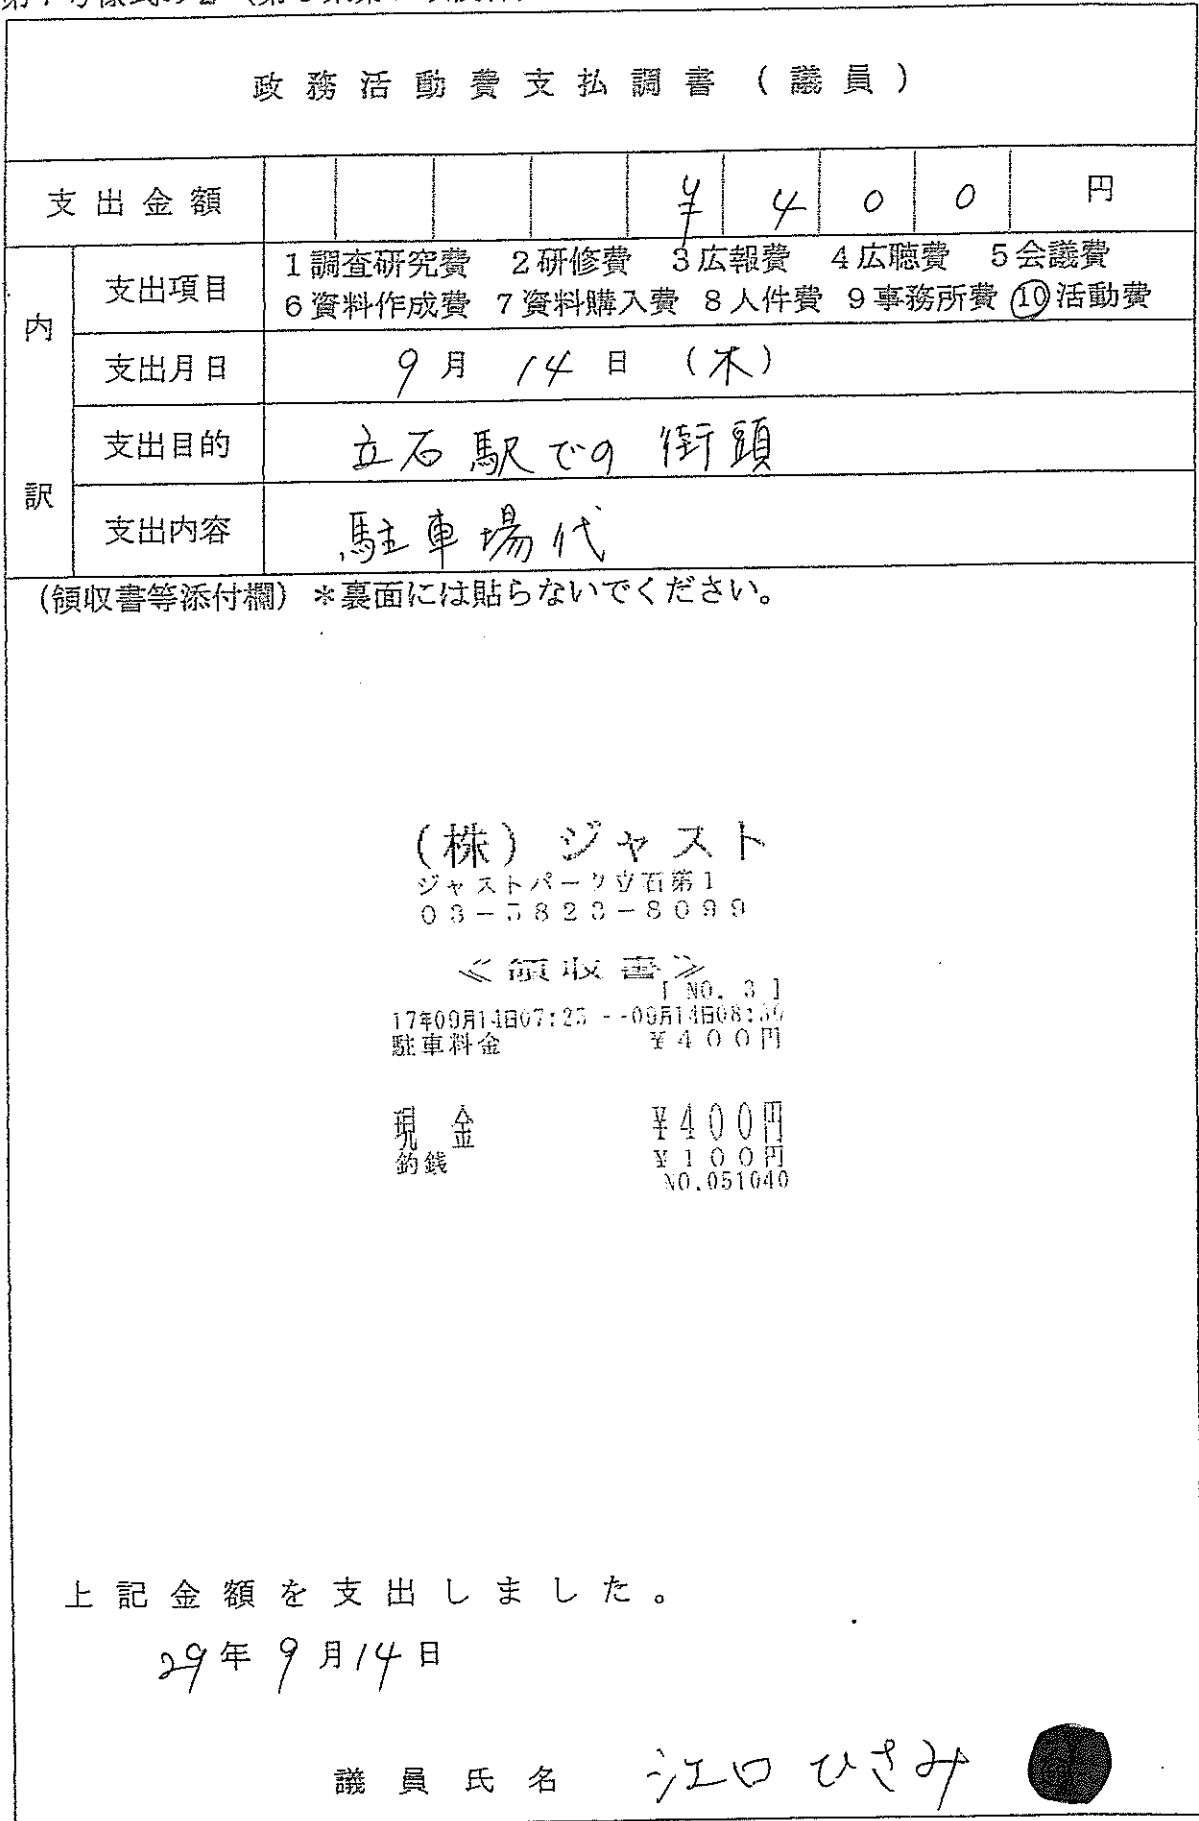 政務活動費支払調書（議員）
支出金額 ¥ 4 0 0 円
内訳
支出項目 1調査研究費 2研修費 3広報費 4広聴費 5会議費
6資料作成費 7資料購入費 8人件費 9事務所費 ⑩活動費
支出月日 9月 14日 (木)
支出目的 立石駅での街頭
支出内容 駐車場代
(領収書等添付欄) ＊裏面には貼らないでください。
(株) ジャスト
ジャストパーク立石第1
03-5823-8099
≪領収書≫
[ NO. 3 ]
17年09月14日07:25 --09月14日
駐車料金 ¥400円
現金 ¥400円
釣銭 ¥100円
NO.051040
上記金額を支出しました。
29年 9月14日
議員氏名 江口ひさみ